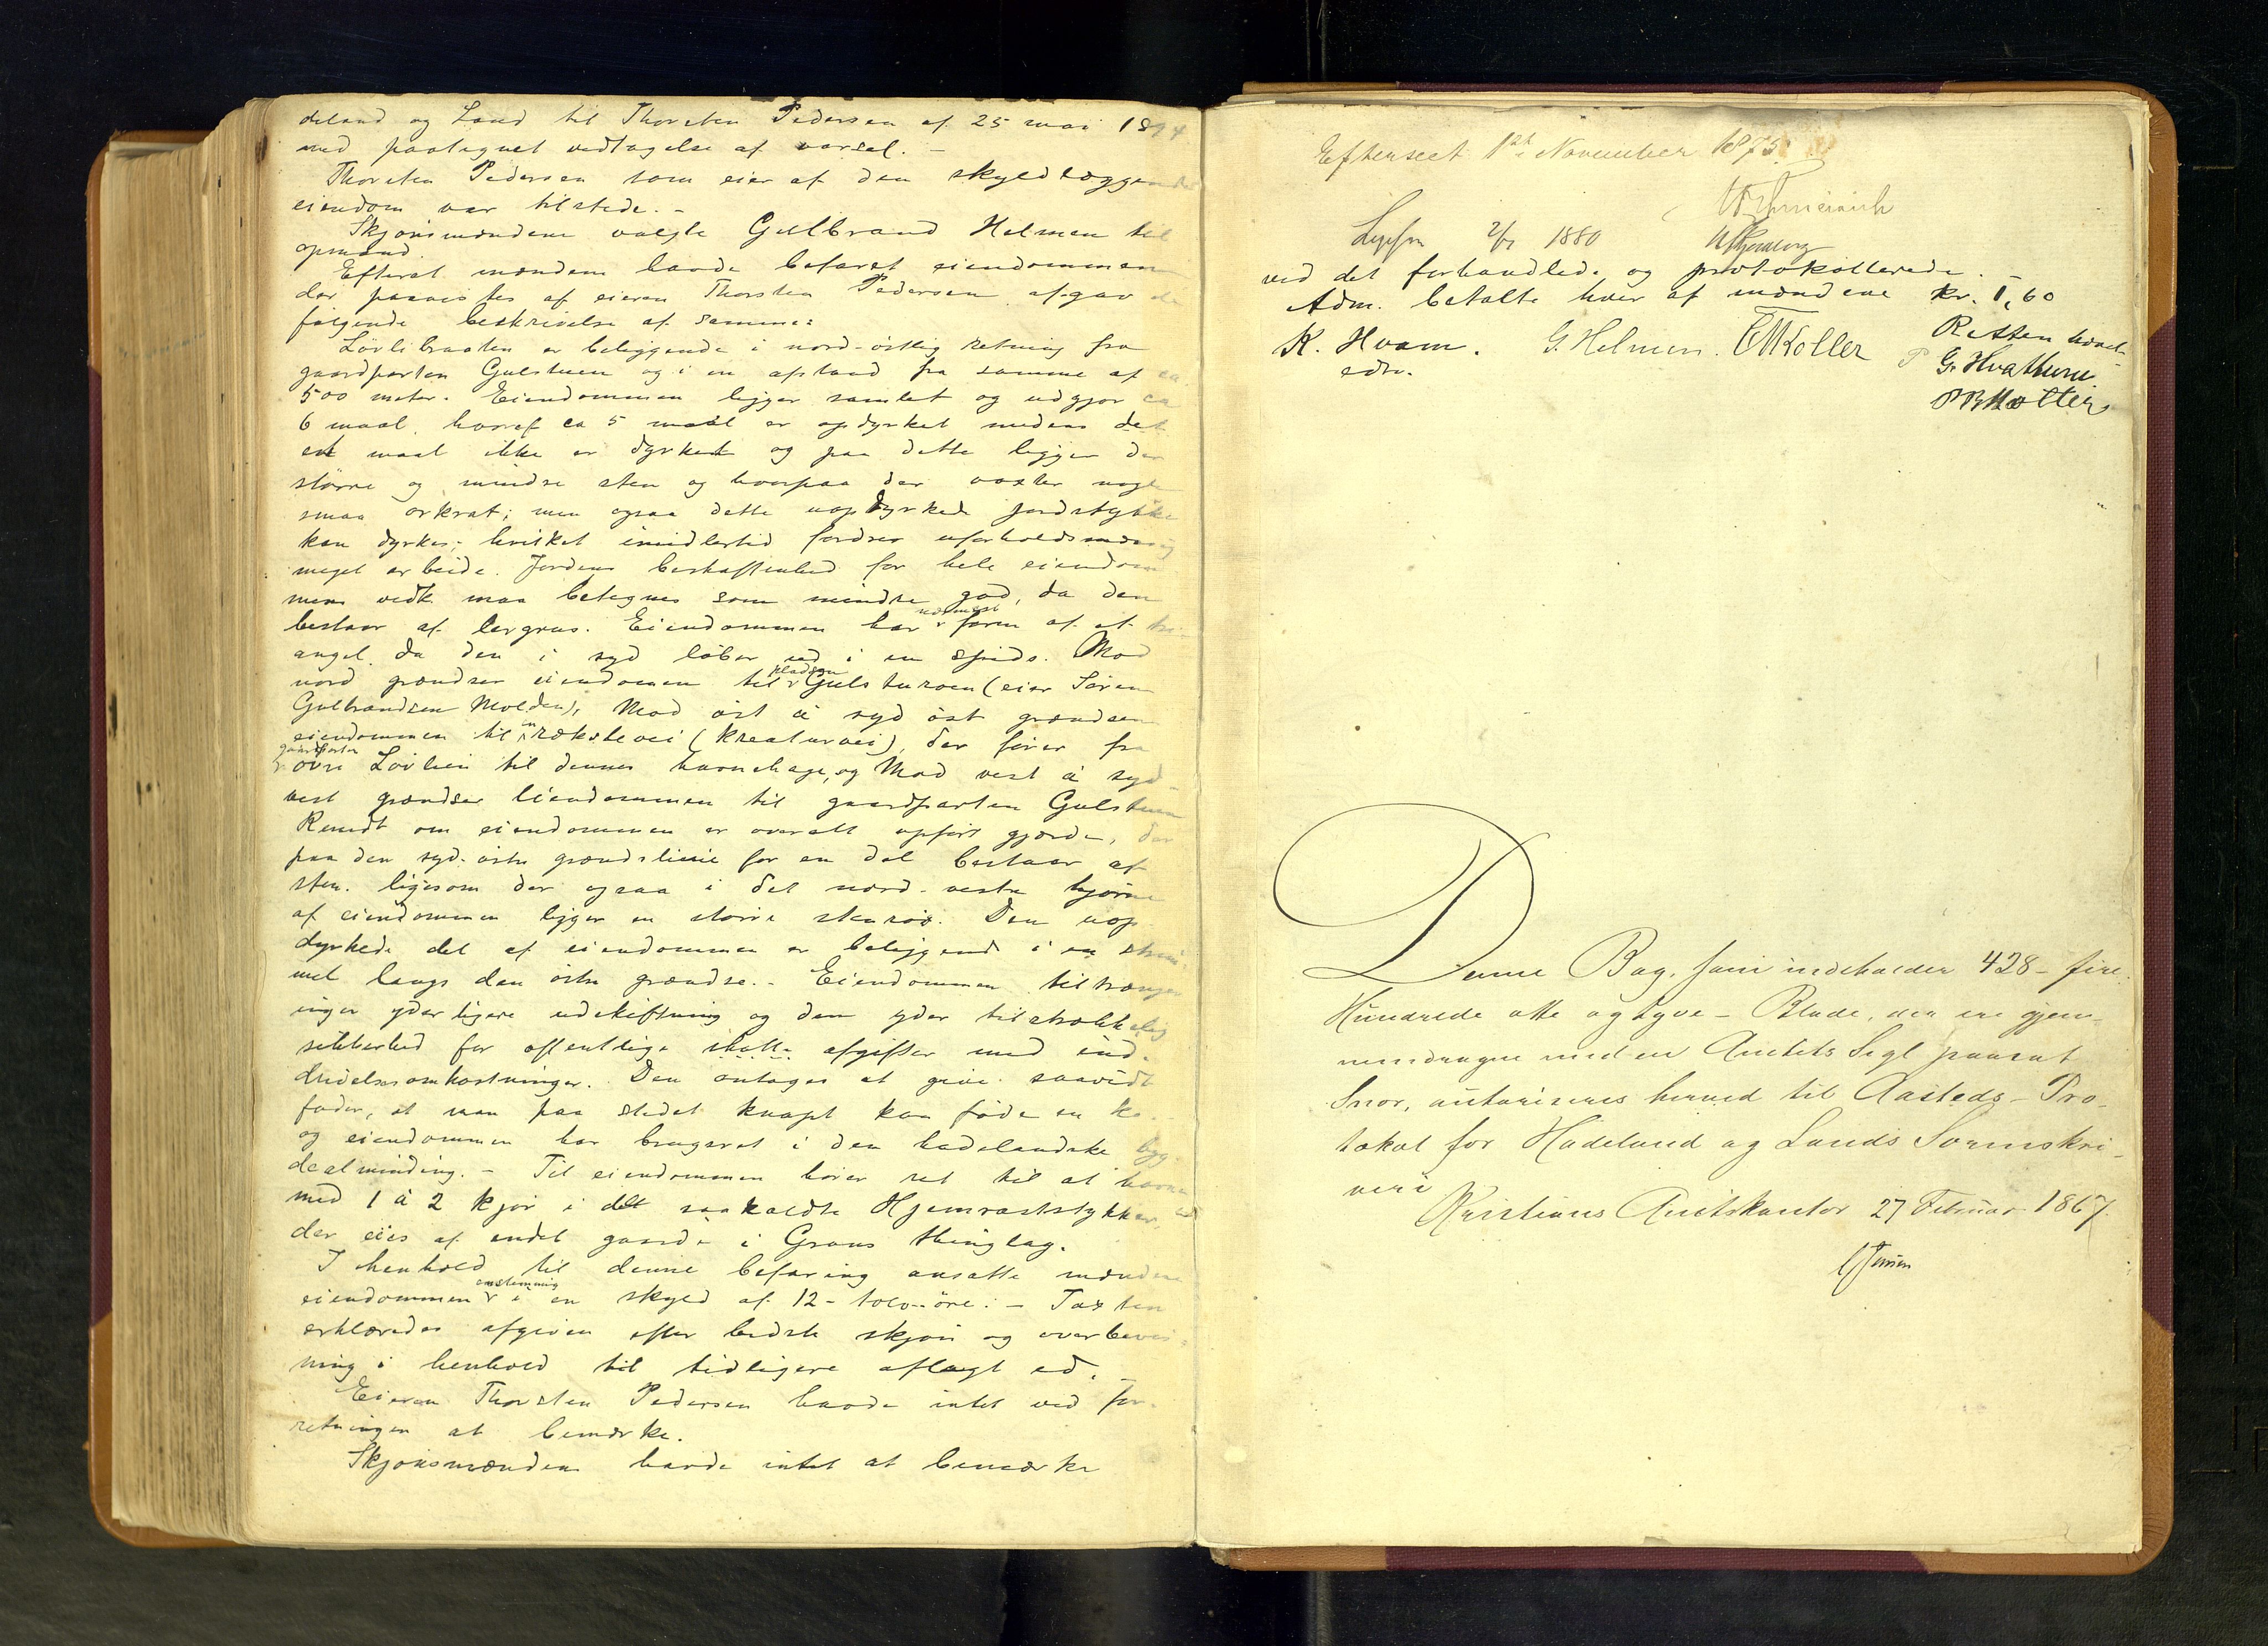 deland og Land til Thorsten Pedersen af 25 mai 1894
med paategnet vedtagelse af varsel. –
Thorsten Pedersen som eier af den skyldlæggende
eiendom var tilstede. –
Skjønsmændene valgte Gulbrand Helmen til
opmand.
Efterat mændene havde befaret eiendommen
der paavistes af eieren Thorsten Pedersen afgav de
følgende beskrivelse af samme:
Lövlibraaten er beliggende i nord-östlig retning fra
gaardparten Gulstuen og i en afstand fra samme af ca
500 meter. Eiendommen ligger samlet og udgjør ca
6 maal, hvoraf ca 5 maal er opdyrket medens det
ene maal ikke er dyrket og paa dette ligger der
större og mindre sten og hvorpaa der voxter nogle
smaa orkrat; men ogsaa dette uopdyrkede jordstykke
kan dyrkes; hvilket imidlertid fordrer uforholdsmæssig
meget arbeide. Jordens beskaffenhed for hele eiendom
mens vedk. maa betegnes som mindre god, da den
bestaar af lergrus. Eiendommen har nærmest form af et tri-
angel, da den i syd löber ud i en spids. Mod
nord grændser eiendommen til pladsen Gulsturoen (eier Sören
Gulbrandsen Molden), Mod öst á syd öst grændser
eiendommen til en rækstevei (kreaturvei), der förer fra
gaardparten övre Lövlien til dennes havnehage, og Mod vest á syd-
vest grændser eiendommen til gaardparten Gulstuen
Rundt om eiendommen er overalt opfört gjærde, der
paa den syd-östre grændselinie for en del bestaar af
sten, ligesom der ogsaa i det nord-vestre hjörne
af eiendommen ligger en större stenrös. Den uop-
dyrkede del af eiendommen er beliggende i en strim-
mel langs den östre grændse. – Eiendommen tiltrænger
ingen yderligere udskiftning og den yder tilstrækkelig
sikkerhed for offentlige skatte afgifter med ind-
drivelsesomkostninger. Den antages at give saavidt
foder, at man paa stedet knapt kan föde en ko
og eiendommen har brugsret i den hadelandske byg-
dealminding. – Til eiendommen hörer ret til at havne
med 1 á 2 kjör i det saakaldte Hjemraststykke,
der eies af endel gaarde i Grans thinglag.
I henhold til denne befaring ansatte mændene
eiendommen enstemmig i en skyld af 12 – tolv – öre: – Taxten
erklæredes afgiven efter bedste skjön og overbevis-
ning i henhold til tidligere aflagt ed. –
Eieren Thorsten Pedersen havde intet ved for-
retningen at bemærke.
Skjønsmændene havde intet at bemærke
Efterseet 1st November 1875.
1880
ved det forhandlede og protokollerede. –
Adm. betalte hver af mændene kr. 1,60
Retten hævet
K. Hvam. G. Helmen. Møller
G. Hvattum
edsv.
Denne Bog, som indeholder 428 – fire
Hundrede otte og tyve – Blade, der ere gjen-
nemdragne med en Amtets Segl paasat
Snor, autoriseres herved til Aasteds-Pro-
tokol for Hadeland og Lands Sorenskri-
veri
Kristians Amtskontor 27 Februar 1867.